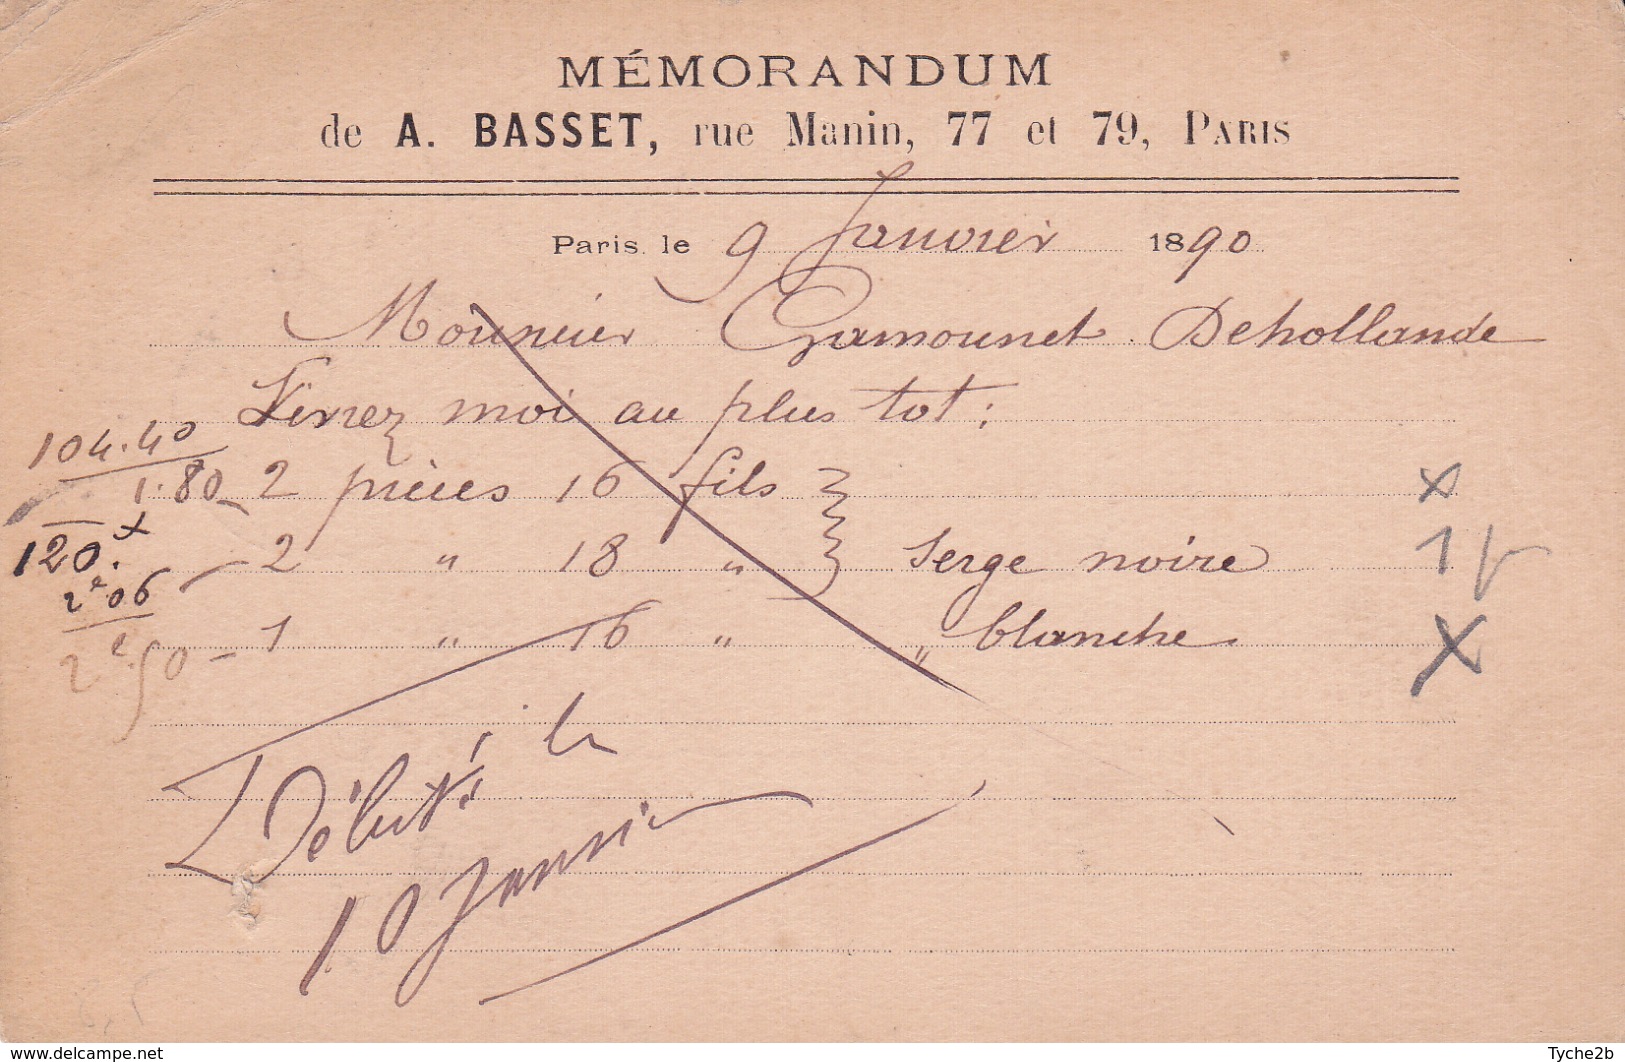 MÉMORANDUM
de A. BASSET, rue Manin, 77 et 79, PARIS
Paris, le 9 Janvier 1890
Monsieur Gamounet Dehollande
Livrez moi au plus tot :
104.40
1.80 - 2 pièces 16 fils x
120. x
2 " 18 " Serge noire 1 p
2e.06
2e.50 - 1 " 16 " " blanche X
Débité le
10 Janvier
www.delcampe.net
Tyche2b